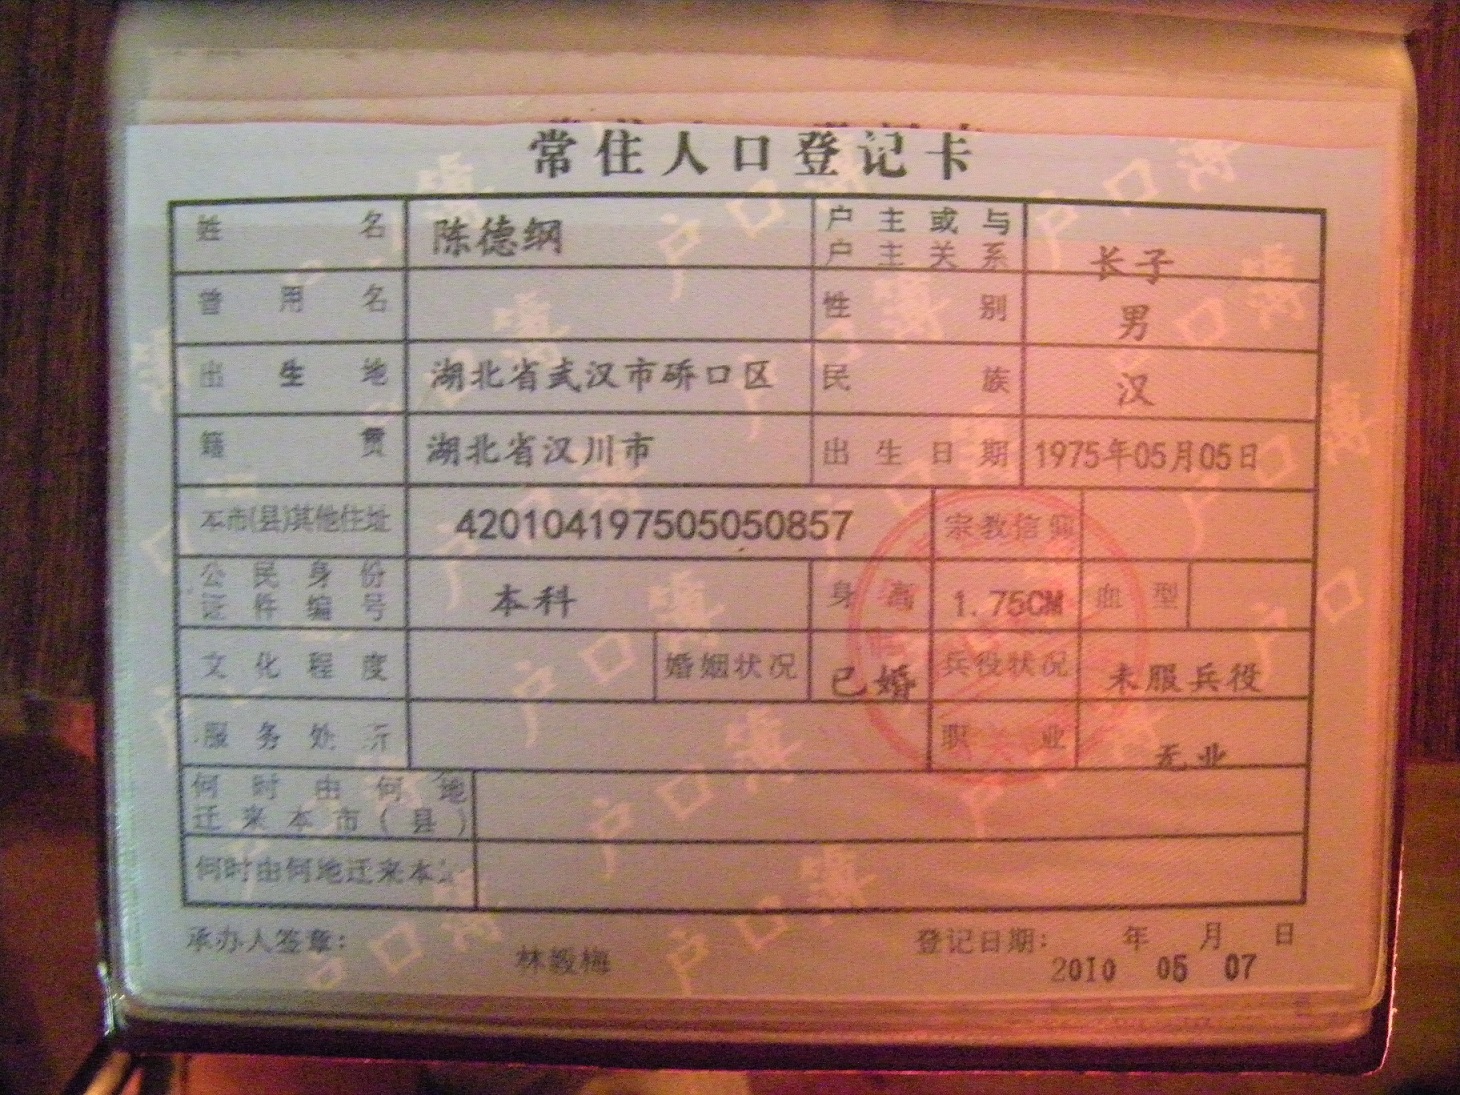 常住人口登记卡
姓名 陈德纲 户主或与户主关系 长子
曾用名 性别 男
出生地 湖北省武汉市硚口区 民族 汉
籍贯 湖北省汉川市 出生日期 1975年05月05日
本市(县)其他住址 420104197505050857 宗教信仰
公民身份证件编号 本科 身高 1.75CM 血型
文化程度 婚姻状况 已婚 兵役状况 未服兵役
服务处所 职业 无业
何时由何地迁来本市(县)
何时由何地迁来本
承办人签章: 林毅梅 登记日期: 年 月 日
2010 05 07
户口簿